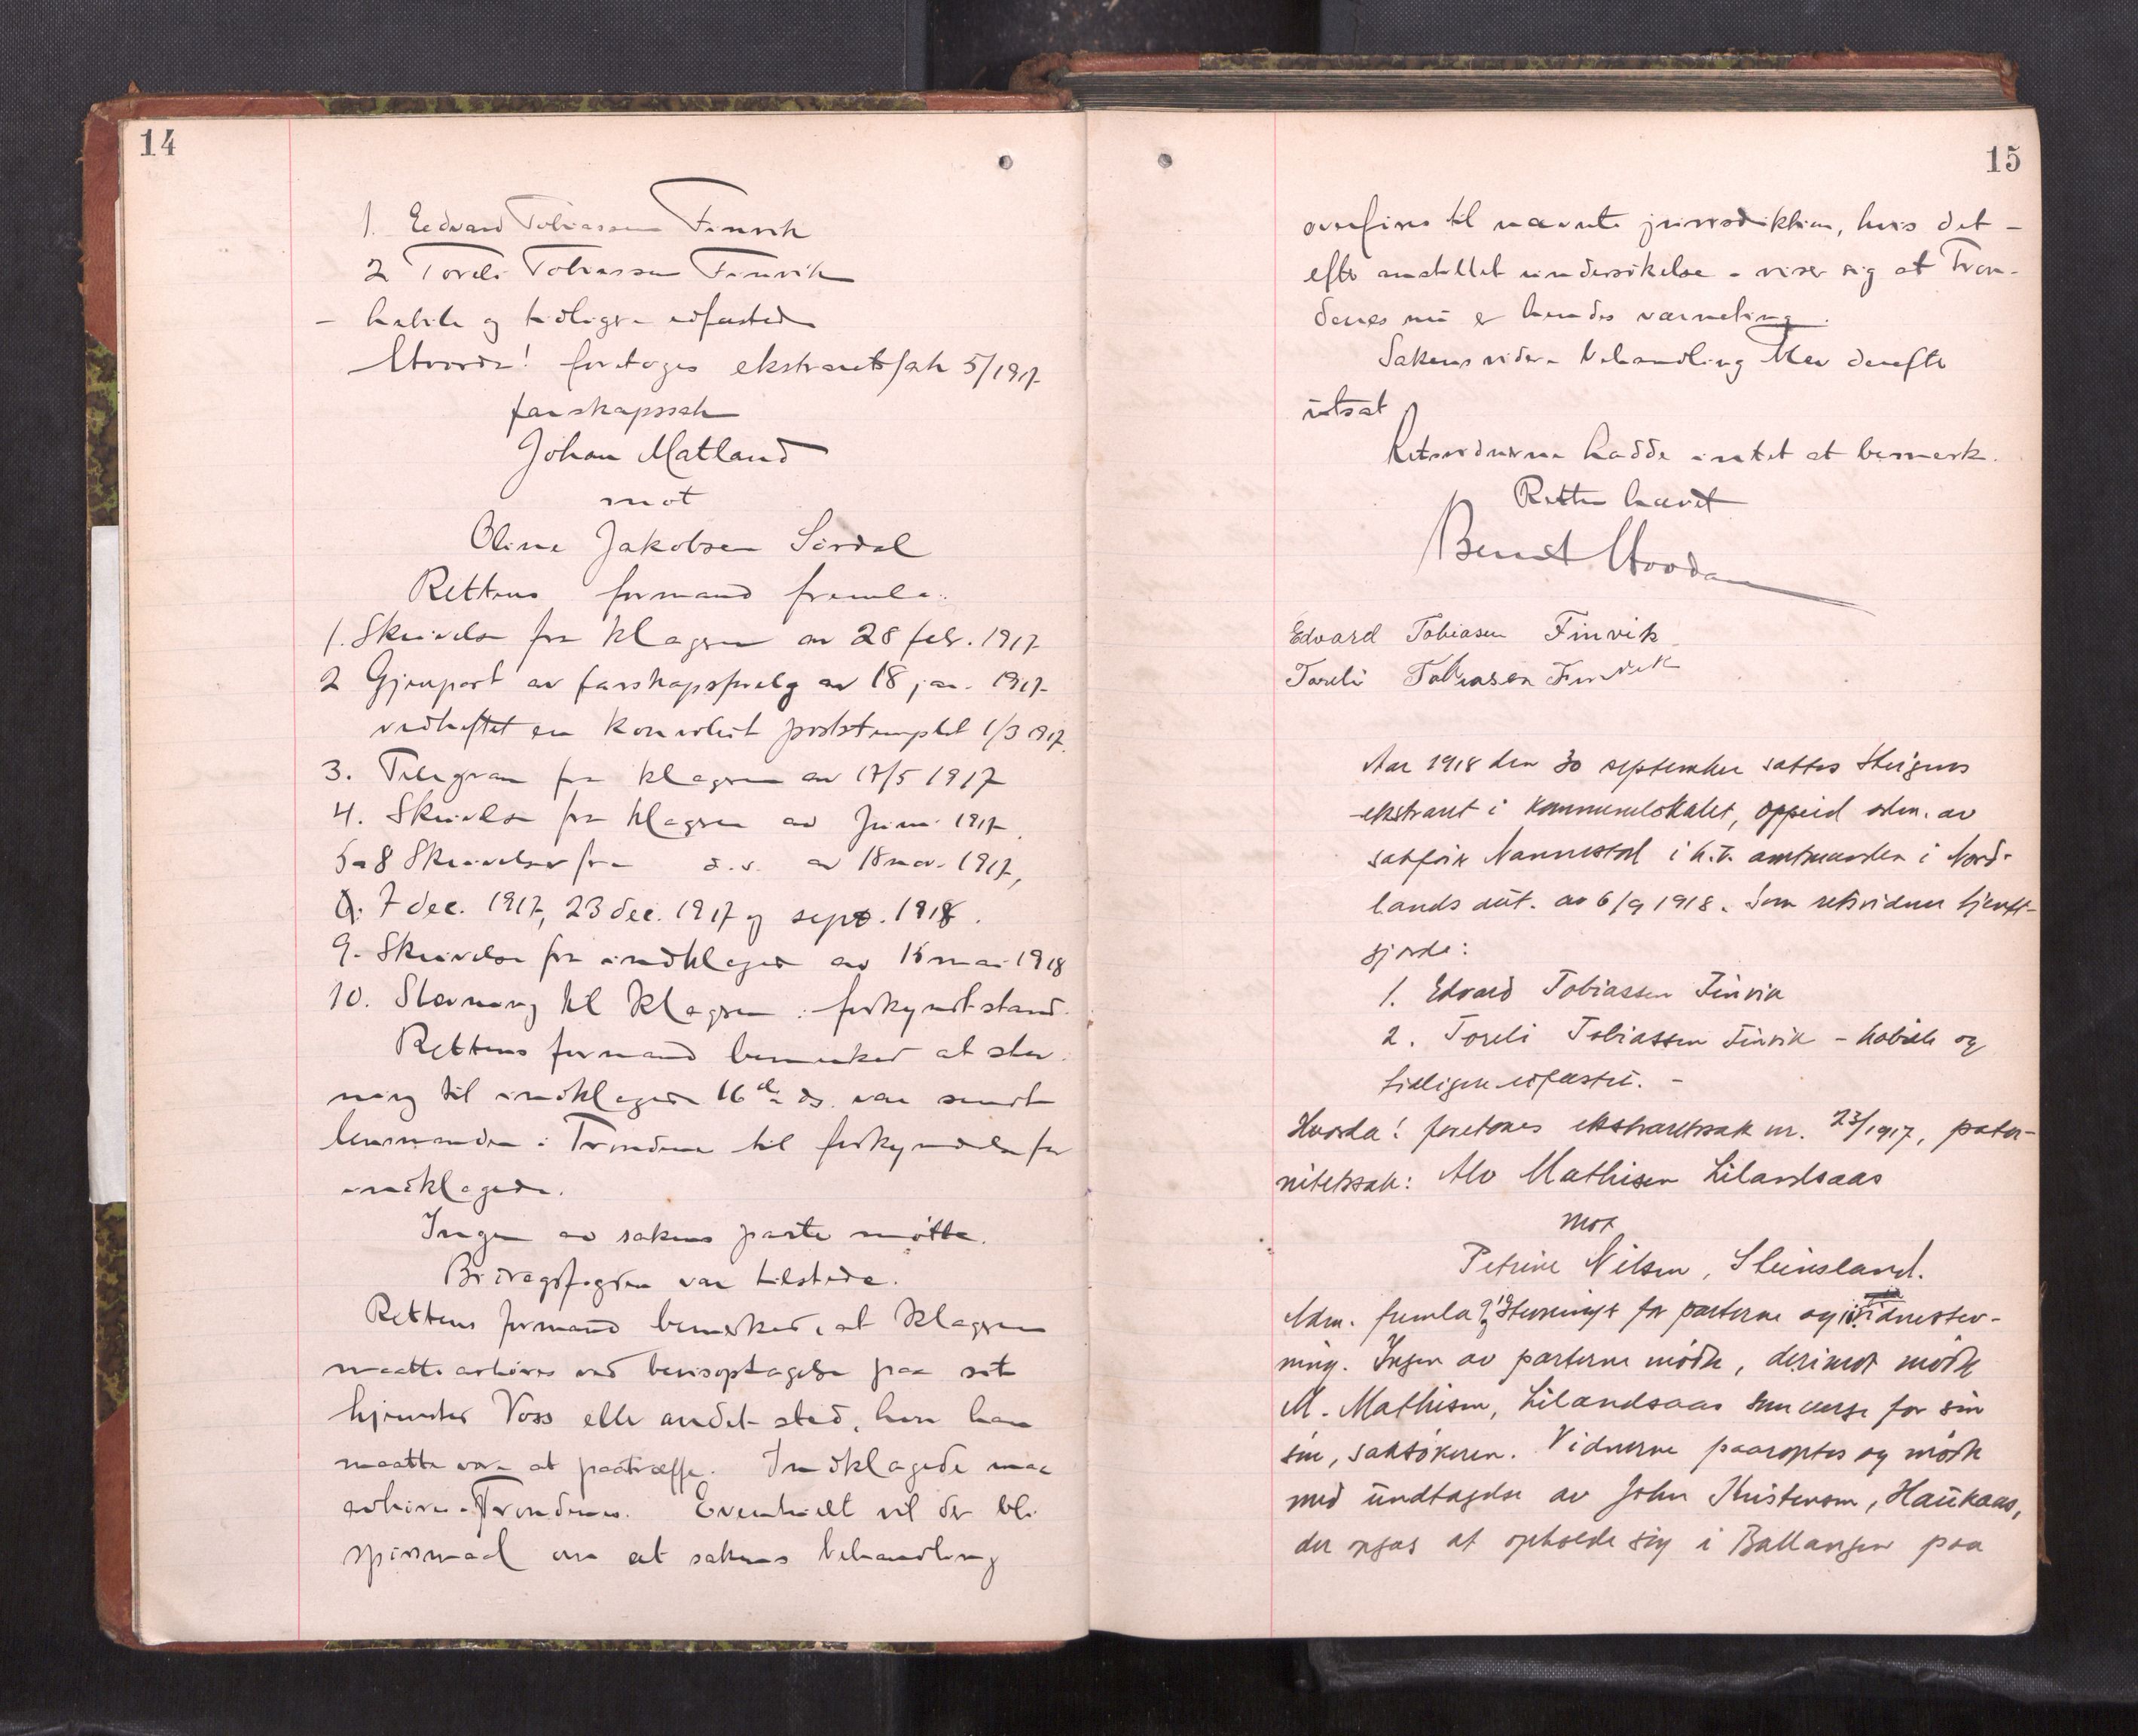 14
1. Edvard Tobiassen Finvik
2 Toreli Tobiassen Finvik
– habile og tidligere edfæstede
Hvorda! foretoges ekstraretssak 5/1917
farskapssak
Johan Matland
mot
Oline Jakobsen Sördal
Rettens formand fremla:
1. Skrivelse fra klageren av 28 febr. 1917
2 Gjenpart av farskapsforelæg av 18 jan. 1917
vedheftet en konvolut poststemplet 1/3 1917.
3. Telegram fra klageren av 17/5 1917
4. Skrivelse fra klageren av juni 1917.
5 a 8 Skrivelser fra d.s. av 18 nov. 1917,
7 dec. 1917, 23 dec. 1917 og sept. 1918.
9. Skrivelse fra indklagede av 15 mai 1918
10. Stevning til klageren i forkyndt stand.
Rettens formand bemerket at stev-
ning til indklagede 16de ds. var sendt
lensmanden i Trondenes til forkyndelse for
indklagede.
Ingen av sakens parter mötte.
Bidragsfogden var tilstede.
Rettens formand bemerket, at klageren
maatte avhöres ved bevisoptagelse paa sit
hjemsted Voss eller andet sted, hvor han
maatte være at paatræffe. Indklagede maa
avhöres i Trondenes. Eventuelt vil der bli
spörsmaal om at sakens behandling
15
overföres til nævnte jurisdiktion, hvis det –
efter anstillet undersökelse – viser sig at Tron-
denes nu er hendes værneting.
Sakens videre behandling blev derefter
utsat
Retsvidnerne hadde intet at bemerke.
Retten hævet
Bernt Hvoodan
Edvard Tobiasen Finvik
Toreli Tobiasen Finvik
Aar 1918 den 30 september sattes Steigens
ekstraret i kommunelokalet, Oppeid adm. av
sakförer Nannestad i h.t. amtmanden i Nord-
lands aut. av 6/9 1918. Som retsvidner tjenst-
gjorde:
1. Edvard Tobiassen Finvik
2. Toreli Tobiassen Finvik – habile og
tidligere edfæstet. –
Hvorda! foretokes ekstraretssak nr. 23/1917, pater-
nitetssak: Alv Mathisen Lilandsaas
mot
Petrine Nilsen, Steinsland.
Adm. fremla stevninger for parterne og vidnestev-
ning. Ingen av parterne mödte, derimot mödte
M. Mathisen, Lilandsaas som verge for sin
sön, saksökeren. Vidnerne paaroptes og mödte
med undtagelse av John Kristensen, Haukaas,
der opgas at opholde sig i Ballangen paa